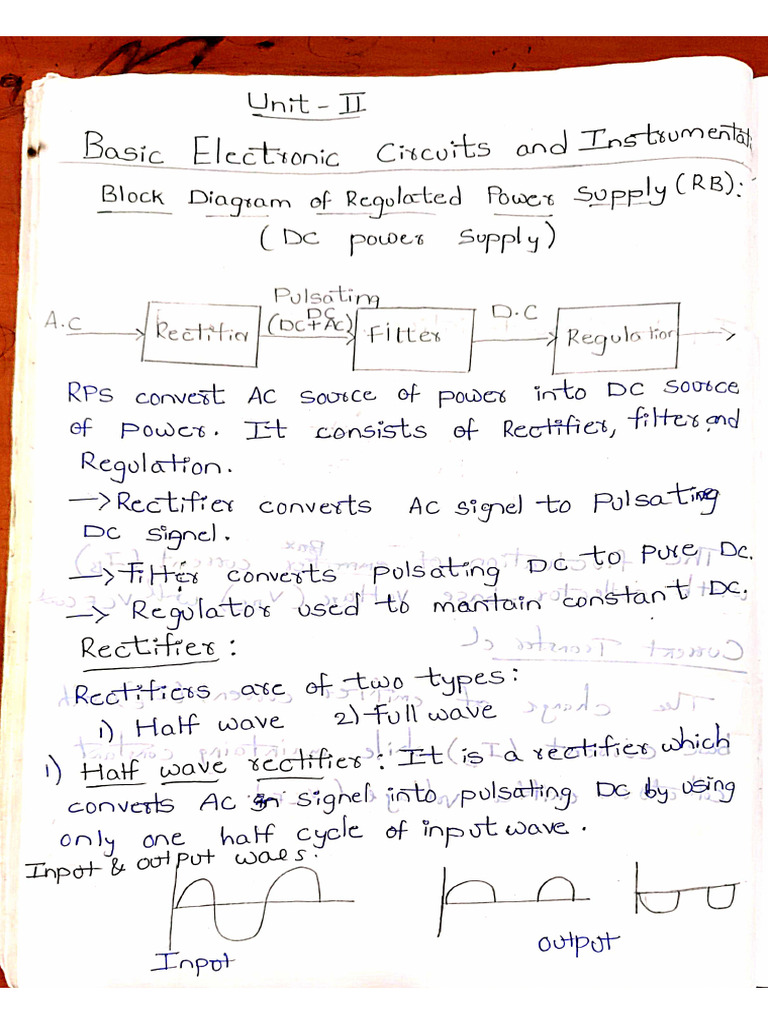 Unit - II
Basic Electronic Circuits and Instrumentat
Block Diagram of Regulated Power Supply (RB):
(DC power supply)
Pulsating
DC
A.C Rectifier (DC+AC) Filter D.C Regulation
RPS convert AC source of power into DC source
of power. It consists of Rectifier, filter and
Regulation.
-> Rectifier converts AC signel to Pulsating
DC signel.
-> Filter converts pulsating DC to pure DC.
-> Regulator used to mantain constant DC.
Rectifier:
Rectifiers are of two types:
1) Half wave 2) Full wave
1) Half wave rectifier: It is a rectifier which
converts AC signel into pulsating DC by using
only one half cycle of input wave.
Input & output waes.
Input
output